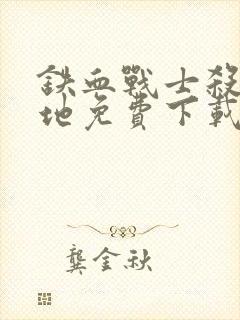 鉄血戰士殺
地免費下載
龔金秋